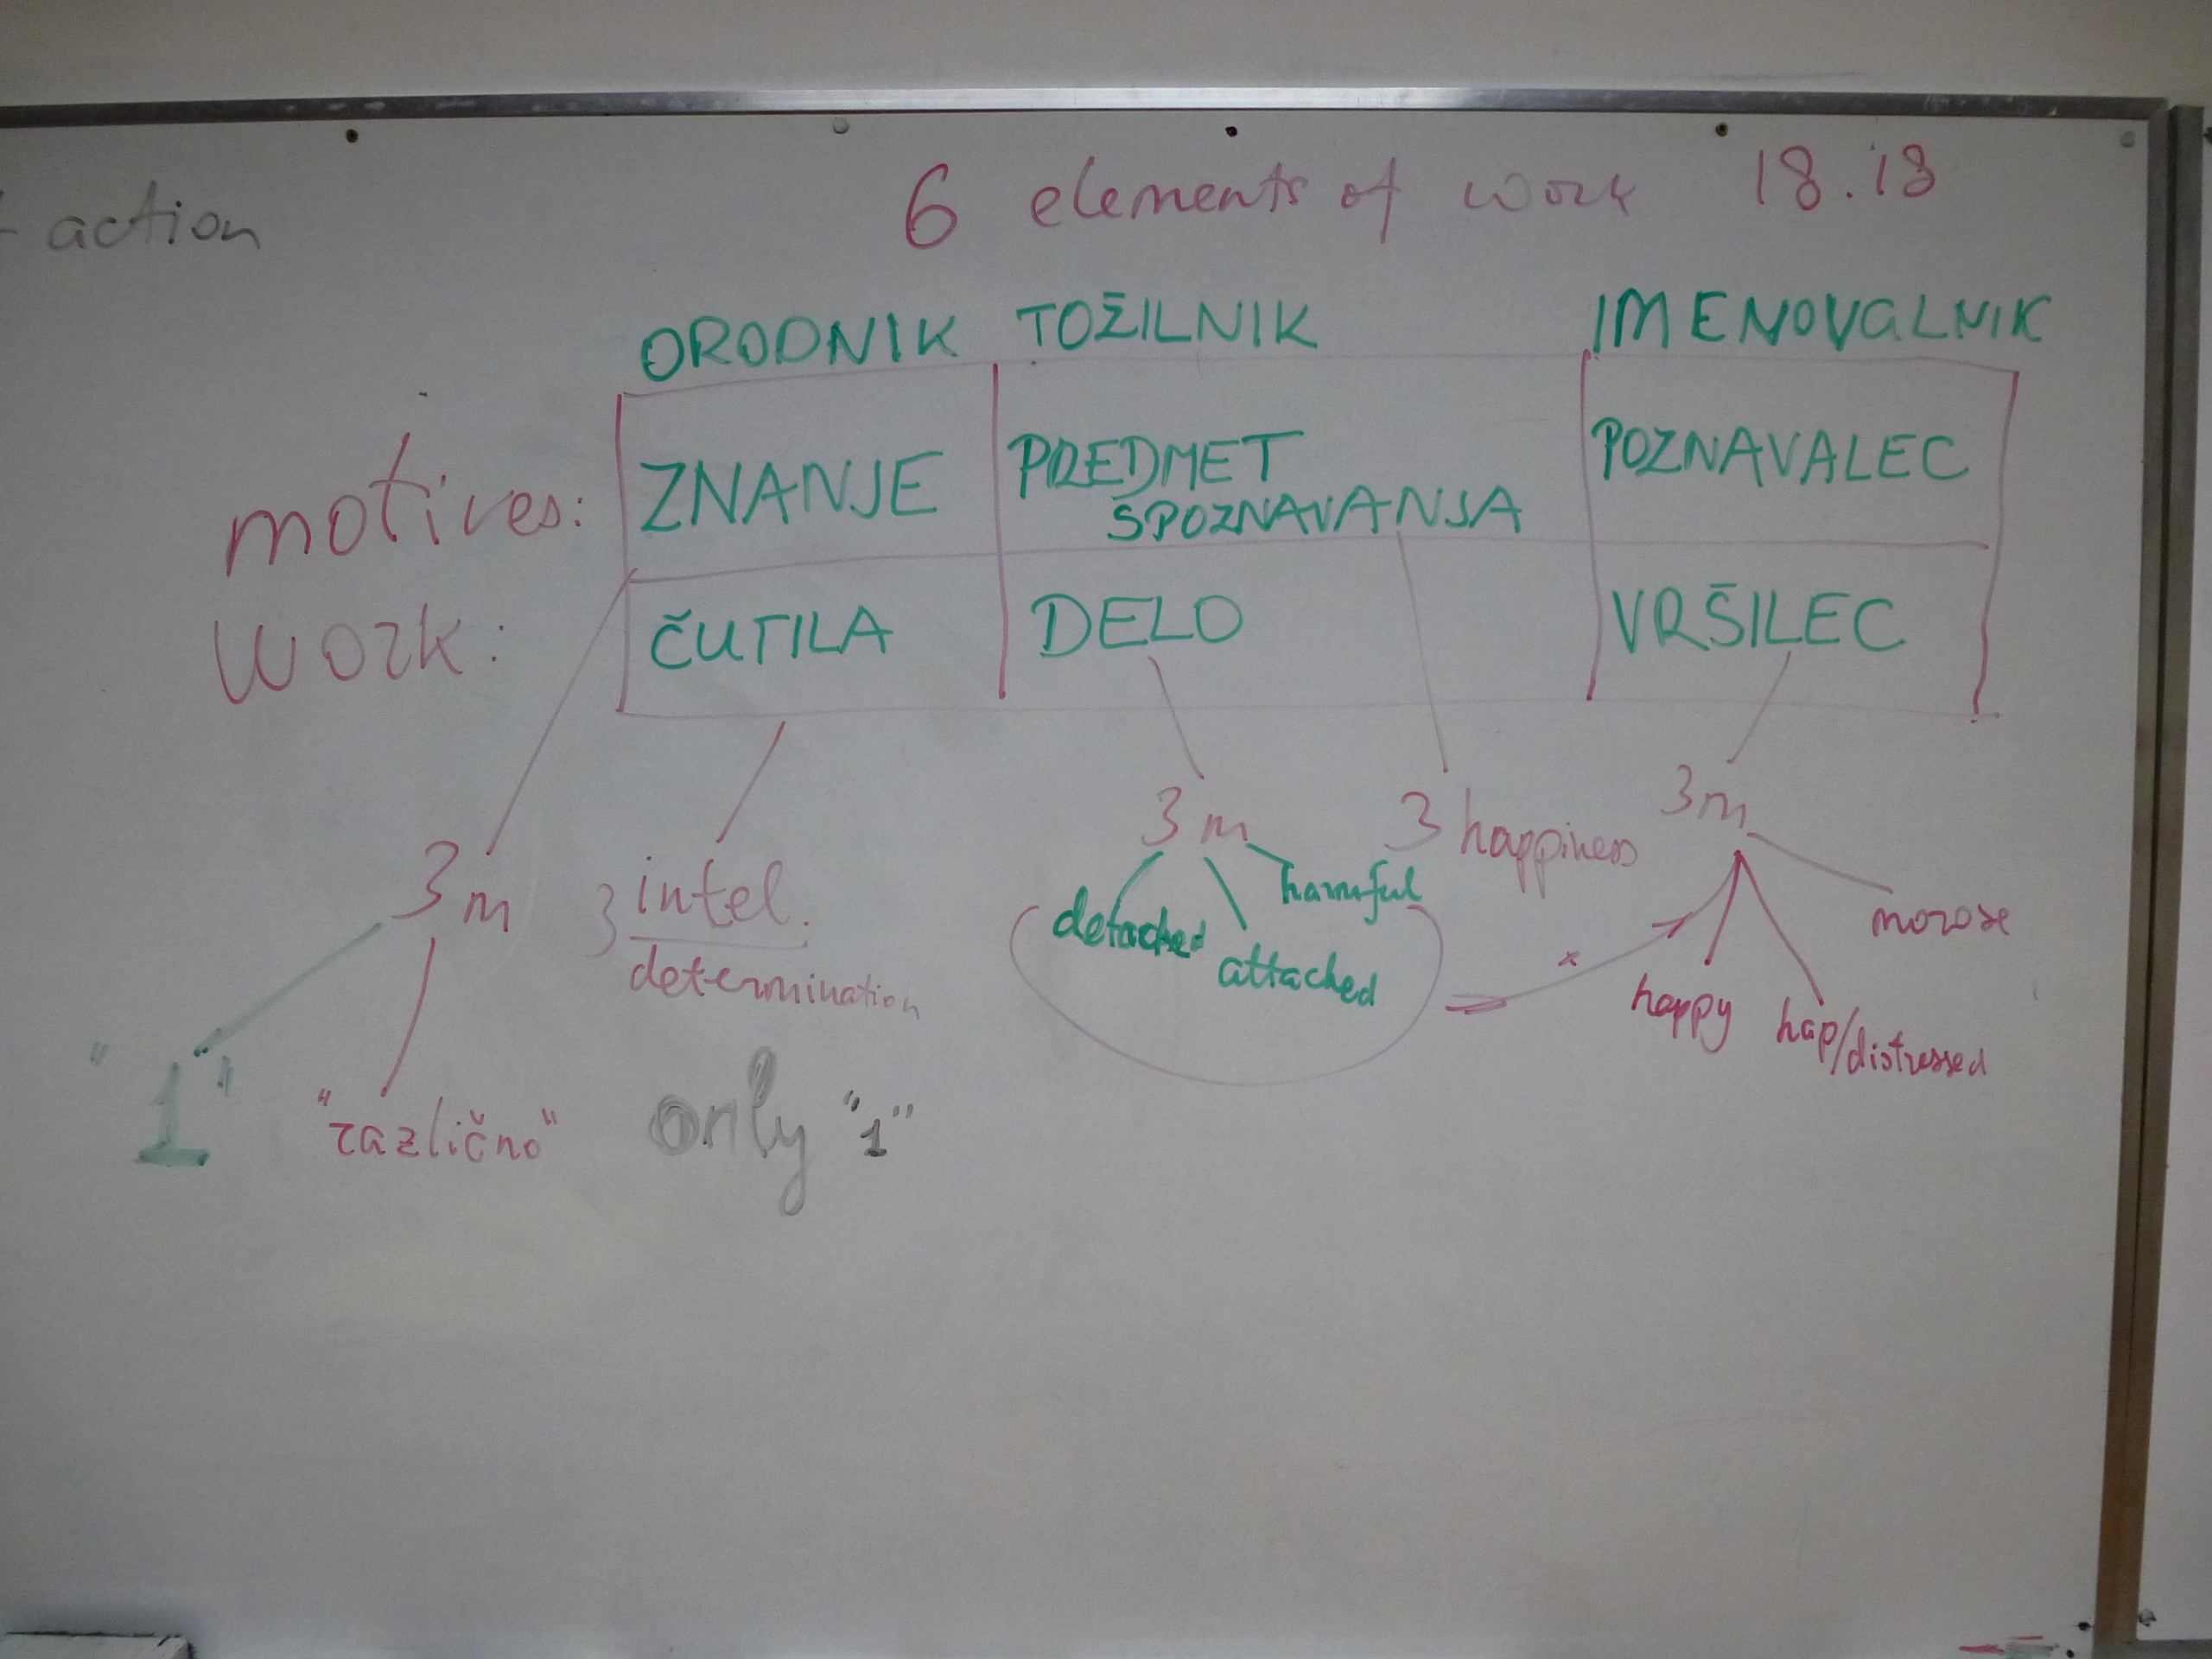 action
6 elements of work 18.18
ORODNIK TOŽILNIK IMENOVALNIK
motives: ZNANJE PREDMET SPOZNAVANJA POZNAVALEC
work: ČUTILA DELO VRŠILEC
3m 3 intel. determination 3m 3 happiness 3m
detached attached harmful
happy hap/distressed morose
"1" "različno" only "1"